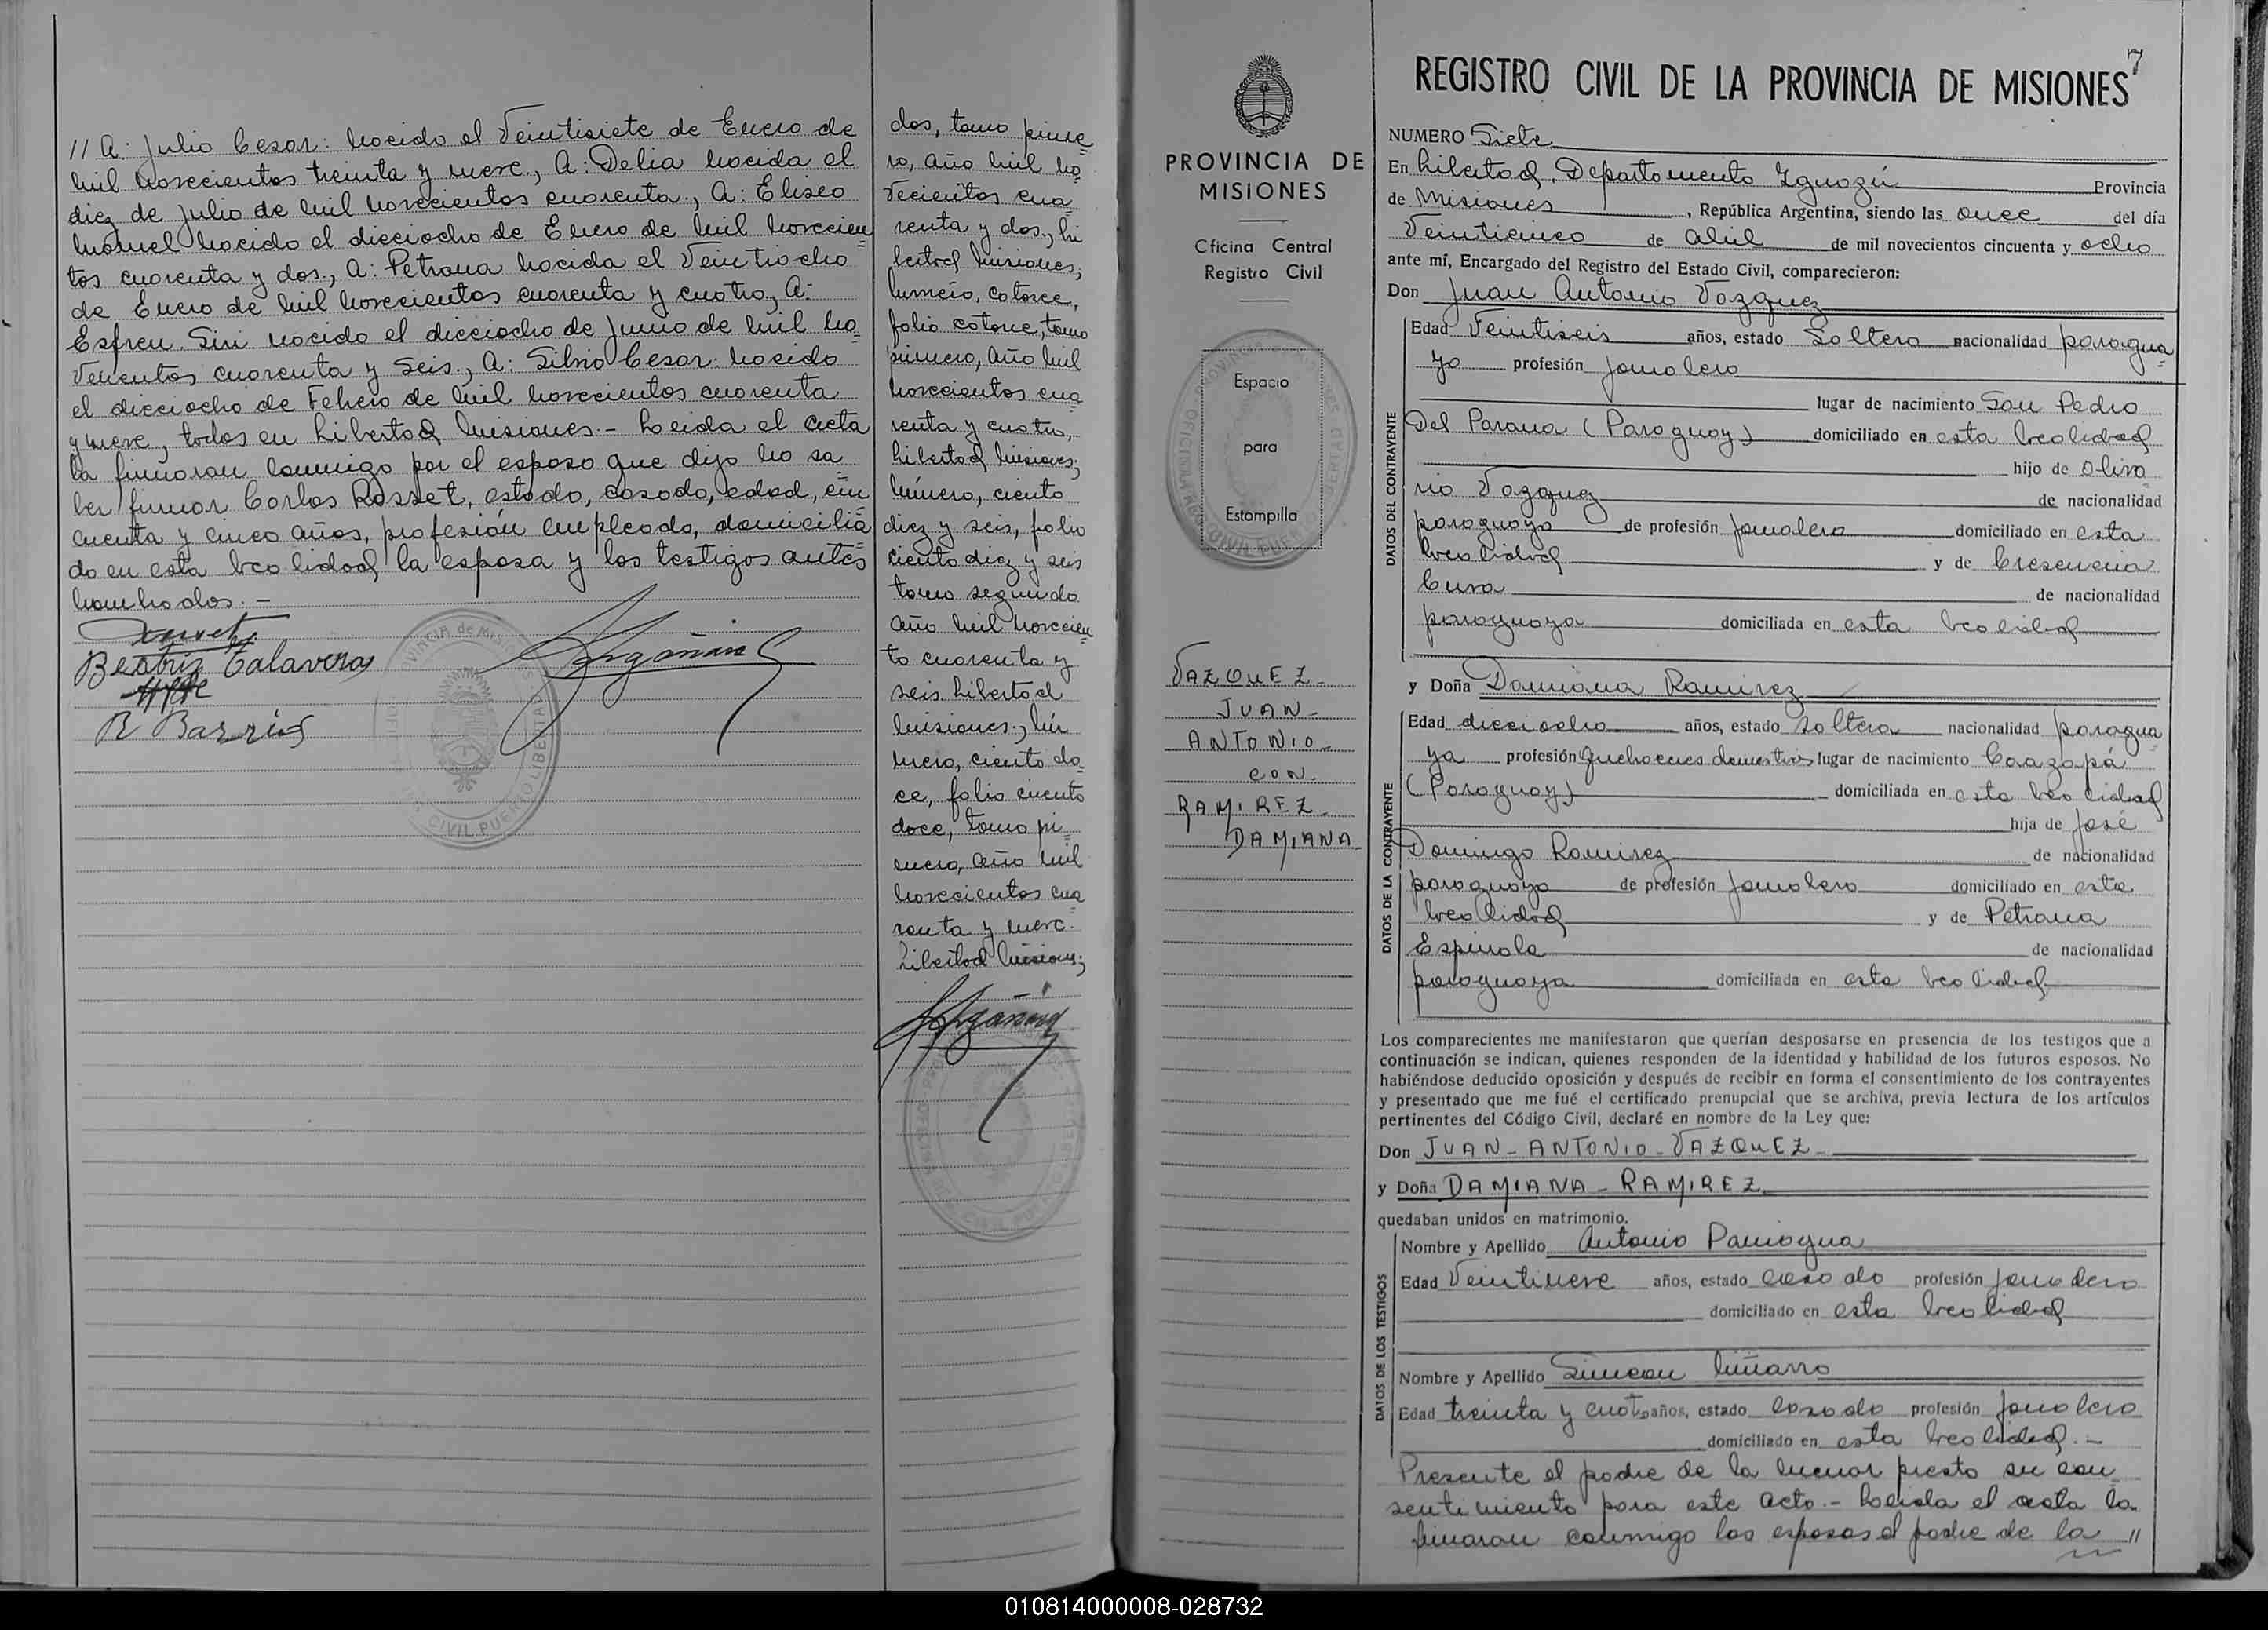 // A: Julio Cesar: nacido el Veintisiete de Enero de
mil novecientos treinta y nueve, A: Delia nacida el
diez de Julio de mil novecientos cuarenta, A: Eliseo
Manuel nacido el dieciocho de Enero de mil novecien
tos cuarenta y dos, A: Petrona nacida el Veintiocho
de Enero de mil novecientos cuarenta y cuatro, A:
Esfren Sin nacido el dieciocho de Junio de mil no
vecientos cuarenta y seis, A: Silvio Cesar: nacido
el dieciocho de Febrero de mil novecientos cuarenta
y nueve, todos en Libertad Misiones.- Leida el acta
la firmaron conmigo por el esposo que dijo no sa
ber firmar Carlos Rosset, estado, casado, edad, cin
cuenta y cinco años, profesión empleado, domicilia
do en esta localidad la esposa y los testigos antes
nombrados.-
Beatriz Talavera
R Barrios
dos, tomo prime
ro, año mil no
vecientos cua
renta y dos, Li
bertad Misiones;
numero, catorce,
folio catorce, tomo
primero, año mil
novecientos cua
renta y cuatro,
Libertad Misiones;
número, ciento
diez y seis, folio
ciento diez y seis
tomo segundo
año mil novecien
to cuarenta y
seis Libertad
Misiones, nú
mero, ciento do
ce, folio ciento
doce, tomo pri
mero, año mil
novecientos cua
renta y nueve.
Libertad Misiones;
PROVINCIA DE
MISIONES
Oficina Central
Registro Civil
Espacio
para
Estampilla
VAZQUEZ-
JUAN-
ANTONIO-
CON-
RAMIREZ-
DAMIANA
7
REGISTRO CIVIL DE LA PROVINCIA DE MISIONES
NUMERO Siete
En Libertad, Departamento Iguazú Provincia
de Misiones, República Argentina, siendo las once del día
Veinticinco de abril de mil novecientos cincuenta y ocho
ante mí, Encargado del Registro del Estado Civil, comparecieron:
Don Juan Antonio Vazquez
DATOS DEL CONTRAYENTE
Edad Veintiseis años, estado Soltero nacionalidad paragua
yo profesión Jornalero
lugar de nacimiento San Pedro
Del Parana (Paraguay) domiciliado en esta localidad
hijo de Oliva
rio Vazquez de nacionalidad
paraguaya de profesión Jornalero domiciliado en esta
localidad y de Crescencia
de nacionalidad
paraguaya domiciliada en esta localidad
y Doña Damiana Ramirez
DATOS DE LA CONTRAYENTE
Edad dieciocho años, estado soltera nacionalidad paragua
ya profesión quehaceres domesticos lugar de nacimiento Caazapá
(Paraguay) domiciliada en esta localidad
hija de José
Domingo Ramirez de nacionalidad
paraguaya de profesión Jornalero domiciliado en esta
localidad y de Petrona
Espinola de nacionalidad
paraguaya domiciliada en esta localidad
Los comparecientes me manifestaron que querían desposarse en presencia de los testigos que a
continuación se indican, quienes responden de la identidad y habilidad de los futuros esposos. No
habiéndose deducido oposición y después de recibir en forma el consentimiento de los contrayentes
y presentado que me fué el certificado prenupcial que se archiva, previa lectura de los artículos
pertinentes del Código Civil, declaré en nombre de la Ley que:
Don JUAN-ANTONIO-VAZQUEZ-
y Doña DAMIANA-RAMIREZ
quedaban unidos en matrimonio.
DATOS DE LOS TESTIGOS
Nombre y Apellido Antonio Paniagua
Edad Veintinueve años, estado casado profesión Jornalero
domiciliado en esta localidad
Nombre y Apellido Simeon Miñarro
Edad treinta y cuatro años, estado casado profesión Jornalero
domiciliado en esta localidad.-
Presente el padre de la menor presto su con
sentimiento para este acto.- Leida el acta la
firmaron conmigo los esposos el padre de la //
010814000008-028732